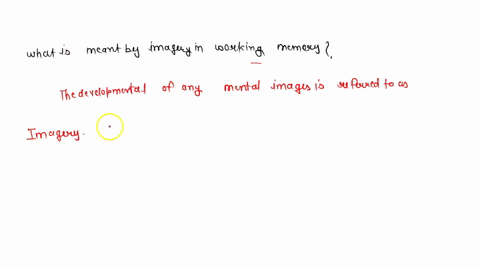 what is meant by imagery in working memory?
The developmental of any mental images is referred to as
Imagery.